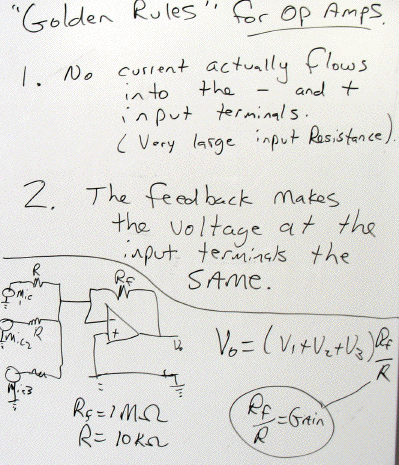 "Golden Rules" for Op Amps.
1. No current actually flows
into the - and +
input terminals.
(Very large input Resistance).
2. The feedback makes
the voltage at the
input terminals the
SAME.
R
Mic
R
Mic2
Mic3
Rf
-
+
Vo
Vo = (V1+V2+V3) Rf/R
Rf = 1MΩ
R = 10KΩ
Rf/R = Gain